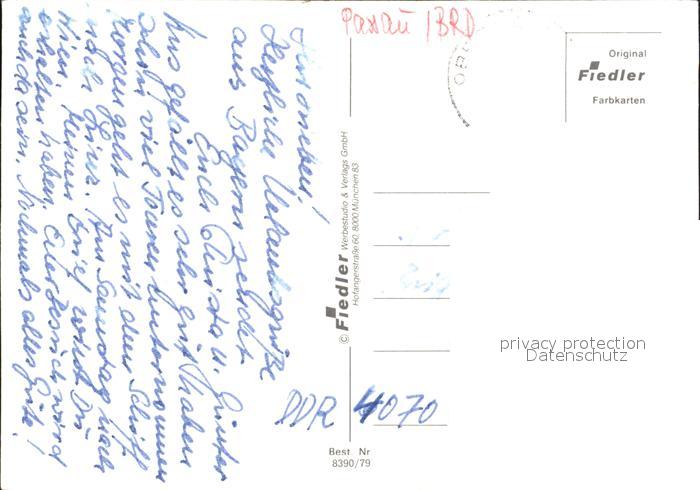 Herzliche Urlaubsgrüße
aus Bayern sendet
Euch Christa u. Günter
Uns gefällt es sehr gut haben
schon viel Touren unternommen
Morgen geht es mit dem Schiff
nach Linz. Am Samstag nach
Wien. Meinen Brief wirst Du
erhalten haben. Euer
auch da sein. Nochmals alles Gute!
Passau / BRD
DDR 4070
© Fiedler Werbestudio & Verlags GmbH
Hofangerstraße 60, 8000 München 83
Best. Nr
8390/79
Original
Fiedler
Farbkarten
privacy protection
Datenschutz